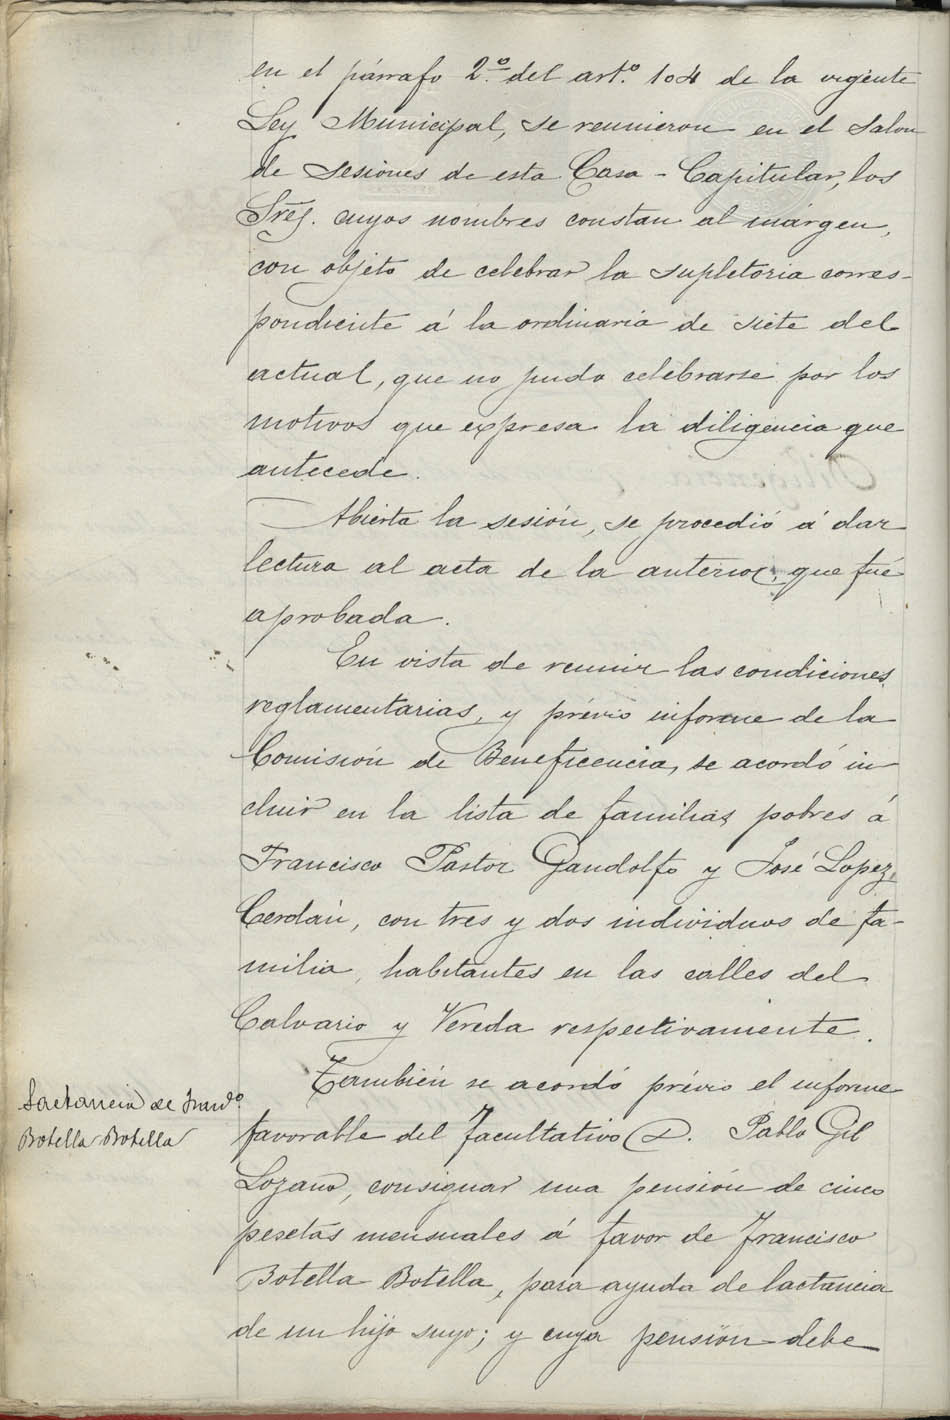 en el párrafo 2.º del art.º 104 de la vigente
Ley Municipal, se reunieron en el salon
de sesiones de esta Casa-Capitular, los
Sres. cuyos nombres constan al márgen,
con objeto de celebrar la supletoria corres-
pondiente á la ordinaria de siete del
actual, que no pudo celebrarse por los
motivos que expresa la diligencia que
antecede.
Abierta la sesión, se procedió á dar
lectura al acta de la anterior, que fué
aprobada.
En vista de reunir las condiciones
reglamentarias, y prévio informe de la
Comisión de Beneficencia, se acordó in
cluir en la lista de familias pobres á
Francisco Pastor Gandolfo y José Lopez
Cerdán, con tres y dos individuos de fa-
milia, habitantes en las calles del
Calvario y Vereda respectivamente.
También se acordó prévio el informe
Lactancia de Fran.co
Botella Botella
favorable del facultativo D. Pablo Gil
Lozano, consignar una pensión de cinco
pesetas mensuales á favor de Francisco
Botella Botella, para ayuda de lactancia
de un hijo suyo; y cuya pensión debe